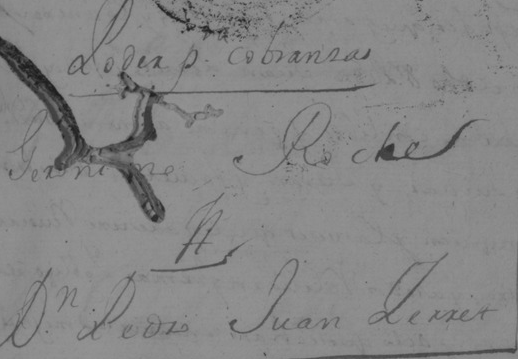 Poder p. cobranzas
Geronime Roche
A
Dn. Pedro Juan Ferrer